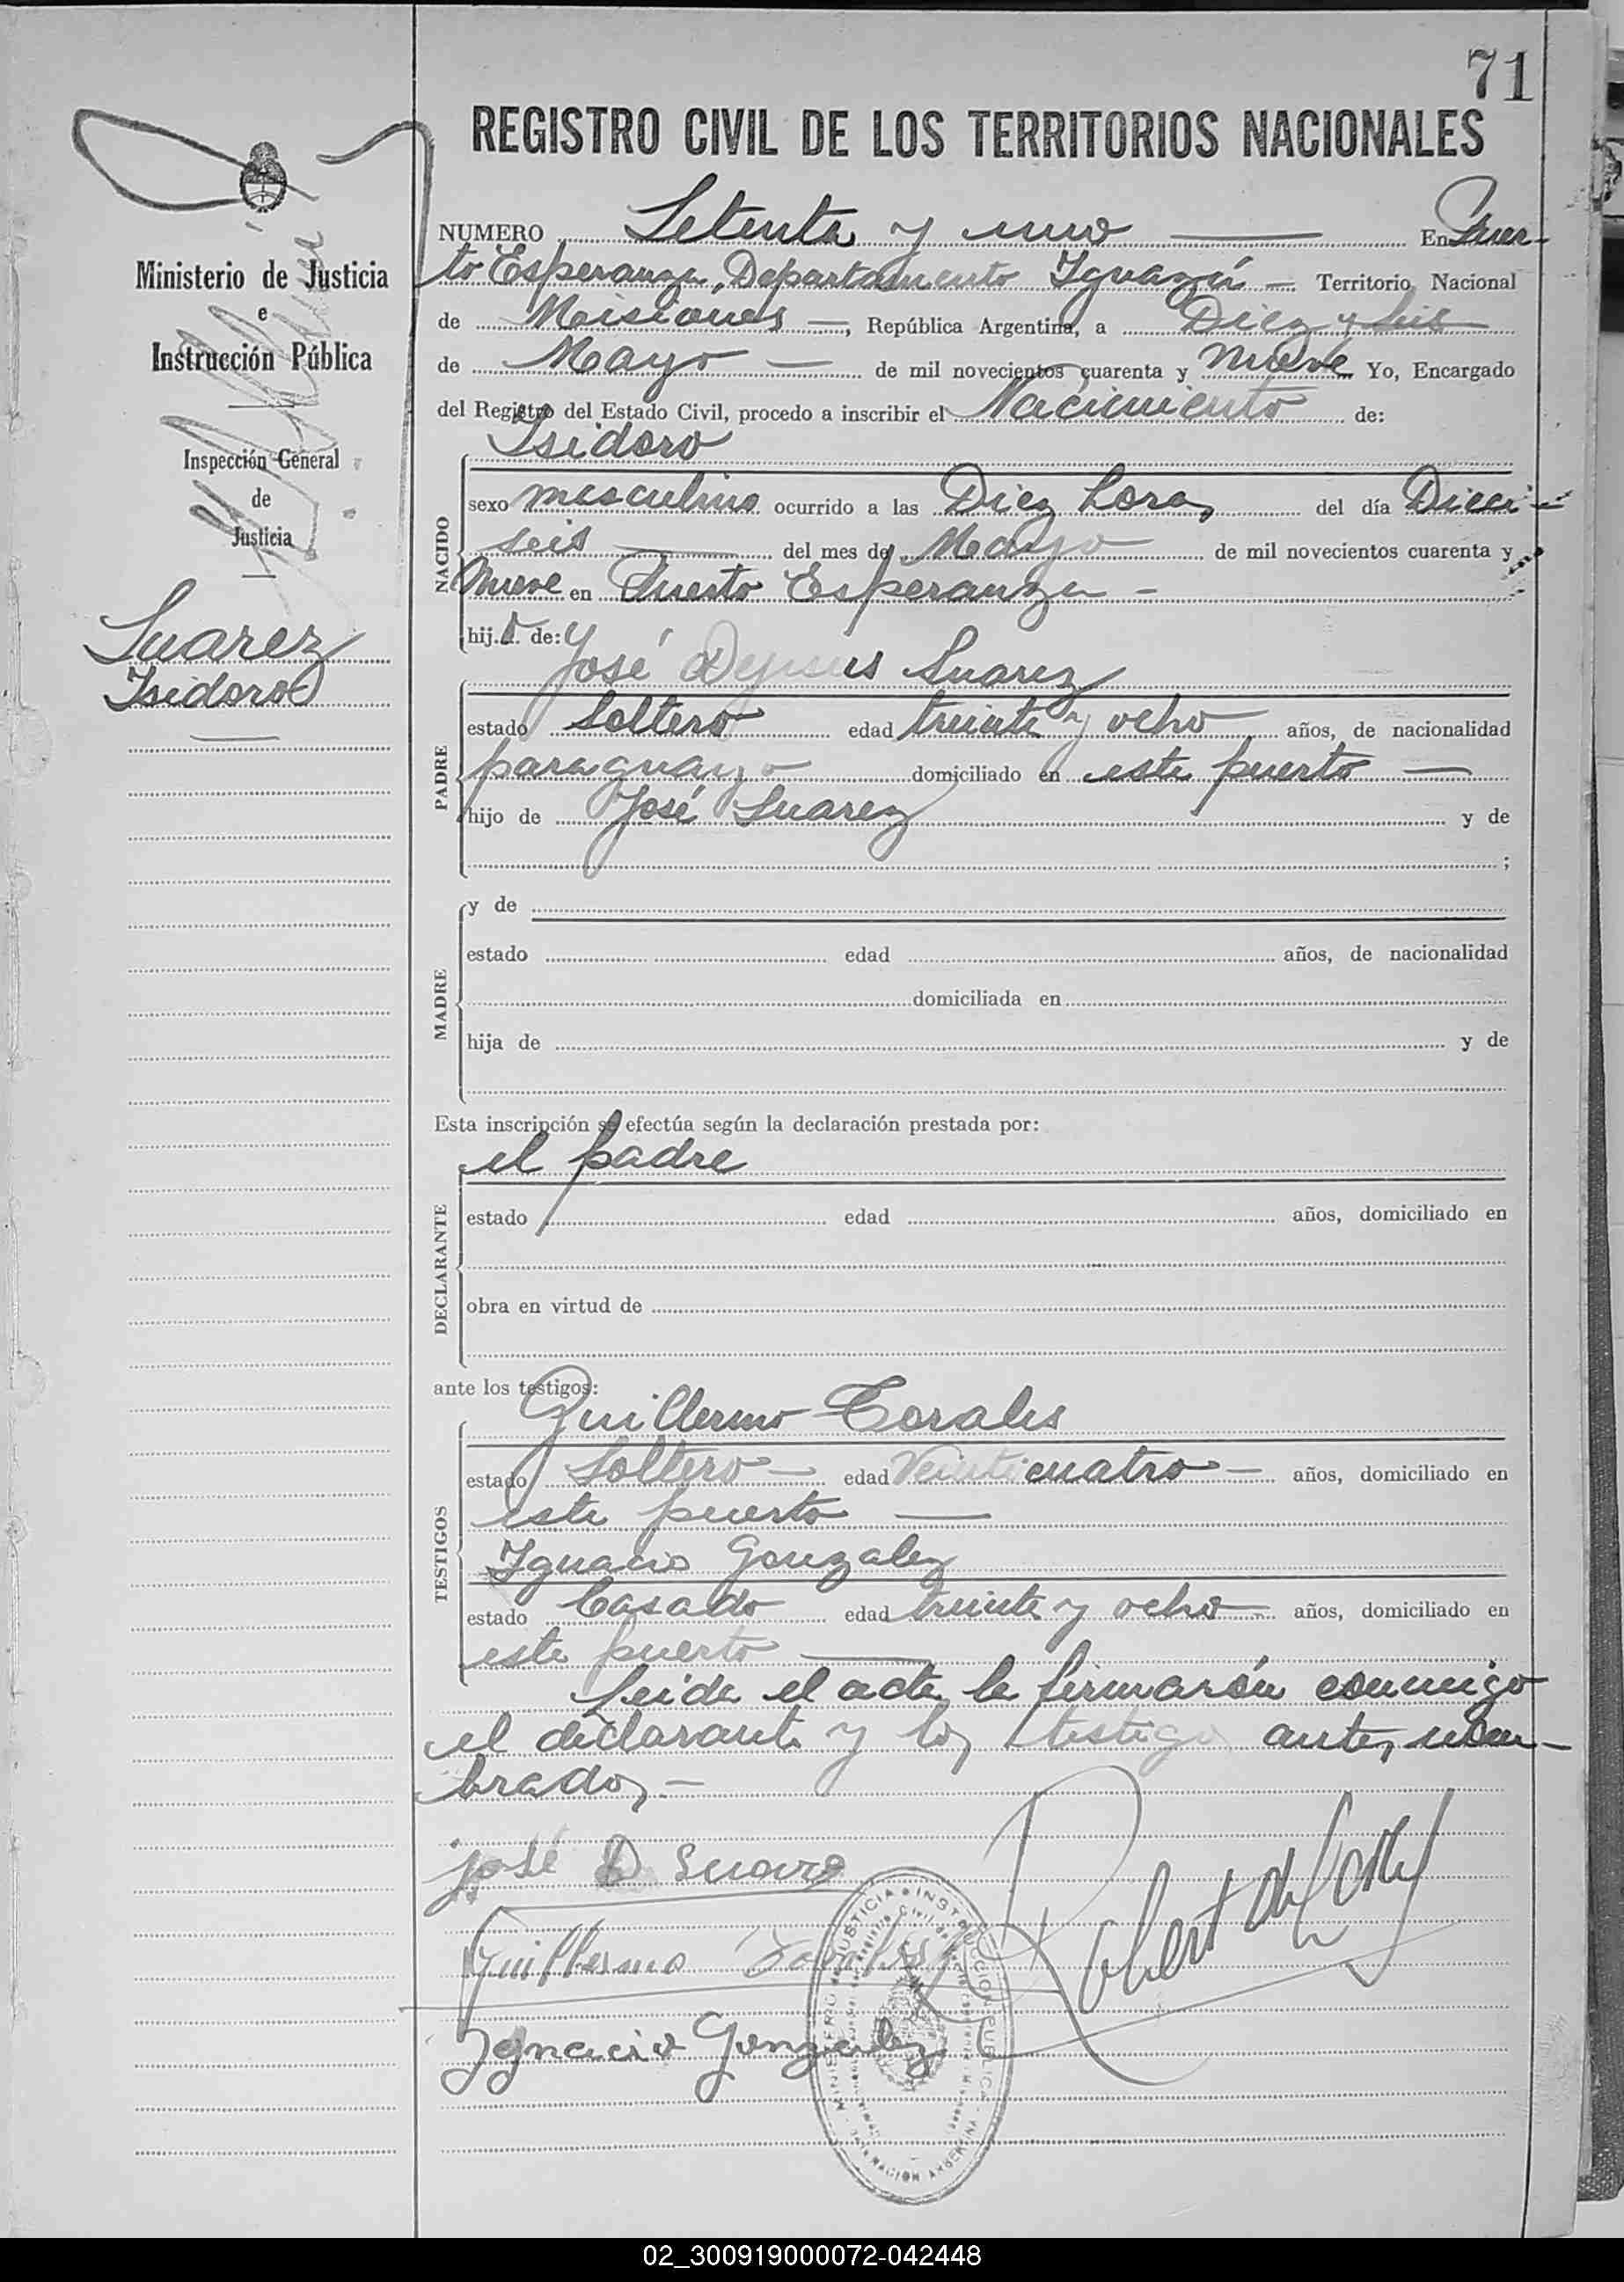 71
REGISTRO CIVIL DE LOS TERRITORIOS NACIONALES
Ministerio de Justicia
e
Instrucción Pública
Inspección General
de
Justicia
Suarez
Isidoro
NUMERO Setenta y uno En Puer-
to Esperanza, Departamento Iguazú Territorio Nacional
de Misiones, República Argentina, a Diez y Seis
de Mayo de mil novecientos cuarenta y nueve Yo, Encargado
del Registro del Estado Civil, procedo a inscribir el Nacimiento de:
Isidoro
NACIDO
sexo masculino ocurrido a las Diez horas del día Dieci-
seis del mes de Mayo de mil novecientos cuarenta y
nueve en Puerto Esperanza -
hijo de:
José Dejesus Suarez
PADRE
estado Soltero edad treinta y ocho años, de nacionalidad
paraguayo domiciliado en este puerto
hijo de José Suarez y de
;
MADRE
y de
estado edad años, de nacionalidad
domiciliada en
hija de y de
Esta inscripción se efectúa según la declaración prestada por:
el padre
DECLARANTE
estado edad años, domiciliado en
obra en virtud de
ante los testigos:
Guillermo Torales
TESTIGOS
estado Soltero edad Veinticuatro años, domiciliado en
este puerto
Ignacio Gonzalez
estado Casado edad treinta y ocho años, domiciliado en
este puerto
Leida el acta, la firmarón conmigo
el declarante y los testigos antes nom-
brados,-
José D Suarez
Guillermo Torales
Ignacio Gonzalez
MINISTERIO DE JUSTICIA INSTRUCCION PUBLICA
NACION ARGENTINA
02_300919000072-042448